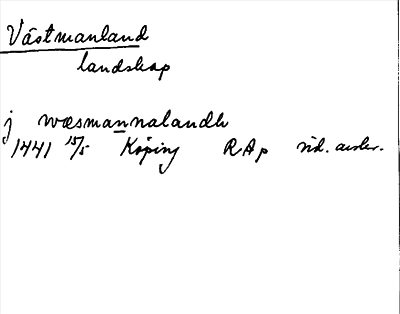 Västmanland
landskap
j wæsmannalandh
1441 15/5 Köping RAp vid. avskr.